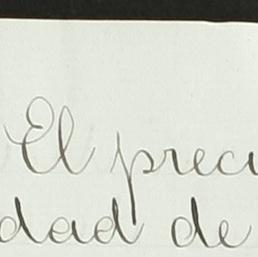 El preci
dad de